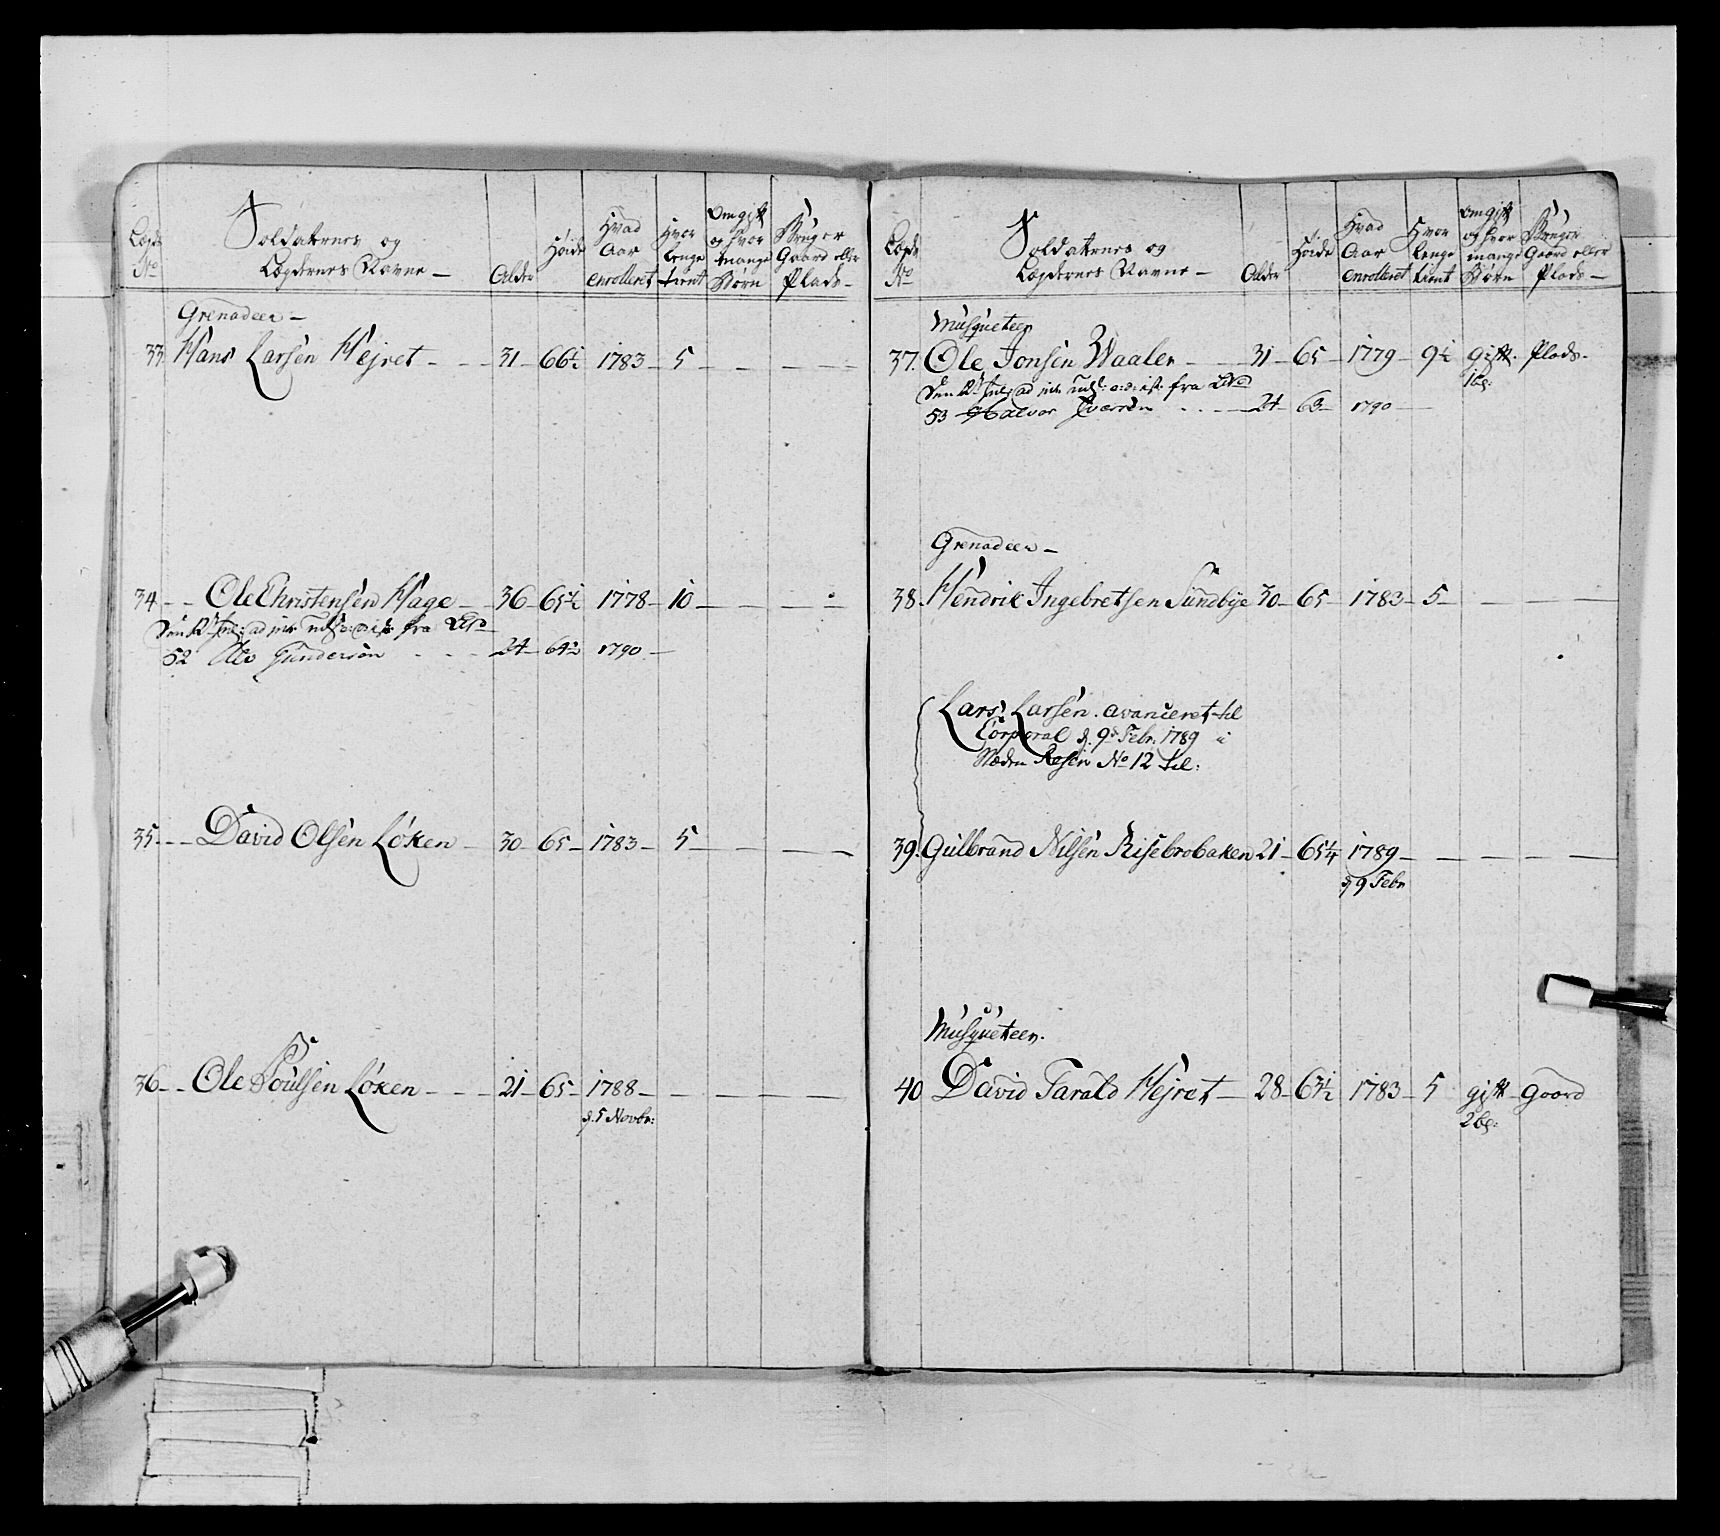 Lægds No
Soldaternes og
Lægdernes Navne —
Alder
Høide
Hvad Aar enrolleret
Hvor lenge tient
Om gift og hvor mange Børn
Bruger Gaard eller Plads —
Grenadeer —
33. Hans Larsen Hejret — 31 — 66½ 1783 — 5 — — — —
34 — Ole Christensen Hage — 36 — 65½ 1778 — 10 — — — —
fra
52 Ole Gundersøn 24 — 64½ 1790 —
35 — David Olsen Løken — 30 — 65 — 1783 — 5 — — — —
36 — Ole Poulsen Løken — 21 — 65 — 1788 — — — — —
d. 5 Novbr:
Lægds No
Soldaternes og
Lægdernes Navne —
Alder
Høide
Hvad Aar enrolleret
Hvor lenge tient
Om gift og hvor mange Børn
Bruger Gaard eller Plads —
Musqueteer
37. Ole Jonsen Waaler — 31 — 65 — 1779 — 9½ gift. Plads.
1 b:
fra
53 Halvor Iversøn — 24 — 63 — 1790 —
Grenadeer —
38. Hendrik Ingebretsen Sundbye 30 — 65 — 1783 — 5 — — — —
Lars Larsen. avanceret til
Corporal d. 9d Febr. 1789 i
Resen No 12 til:
39. Gulbrand Nilsen Risebrobaken 21 — 65¼ 1789 — — — — —
d 9 Febr
Musqueteer.
40 David Tarald Hejret — 28 — 63½ 1783 — 5 gift — gaard
2 b: